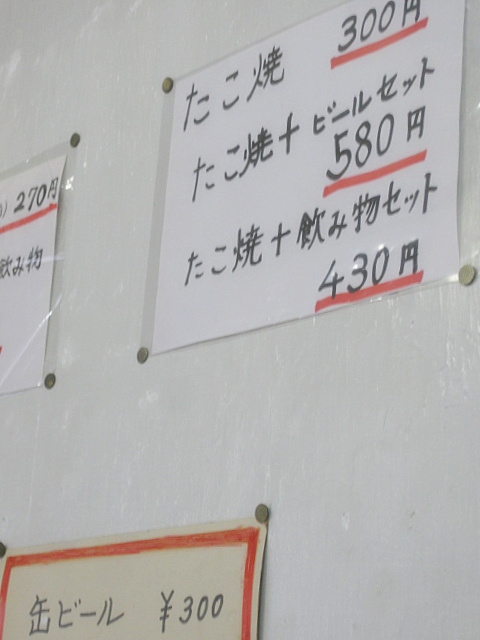 たこ焼 300円
たこ焼+ビールセット
580円
たこ焼+飲み物セット
430円
270円
飲み物
缶ビール ¥300